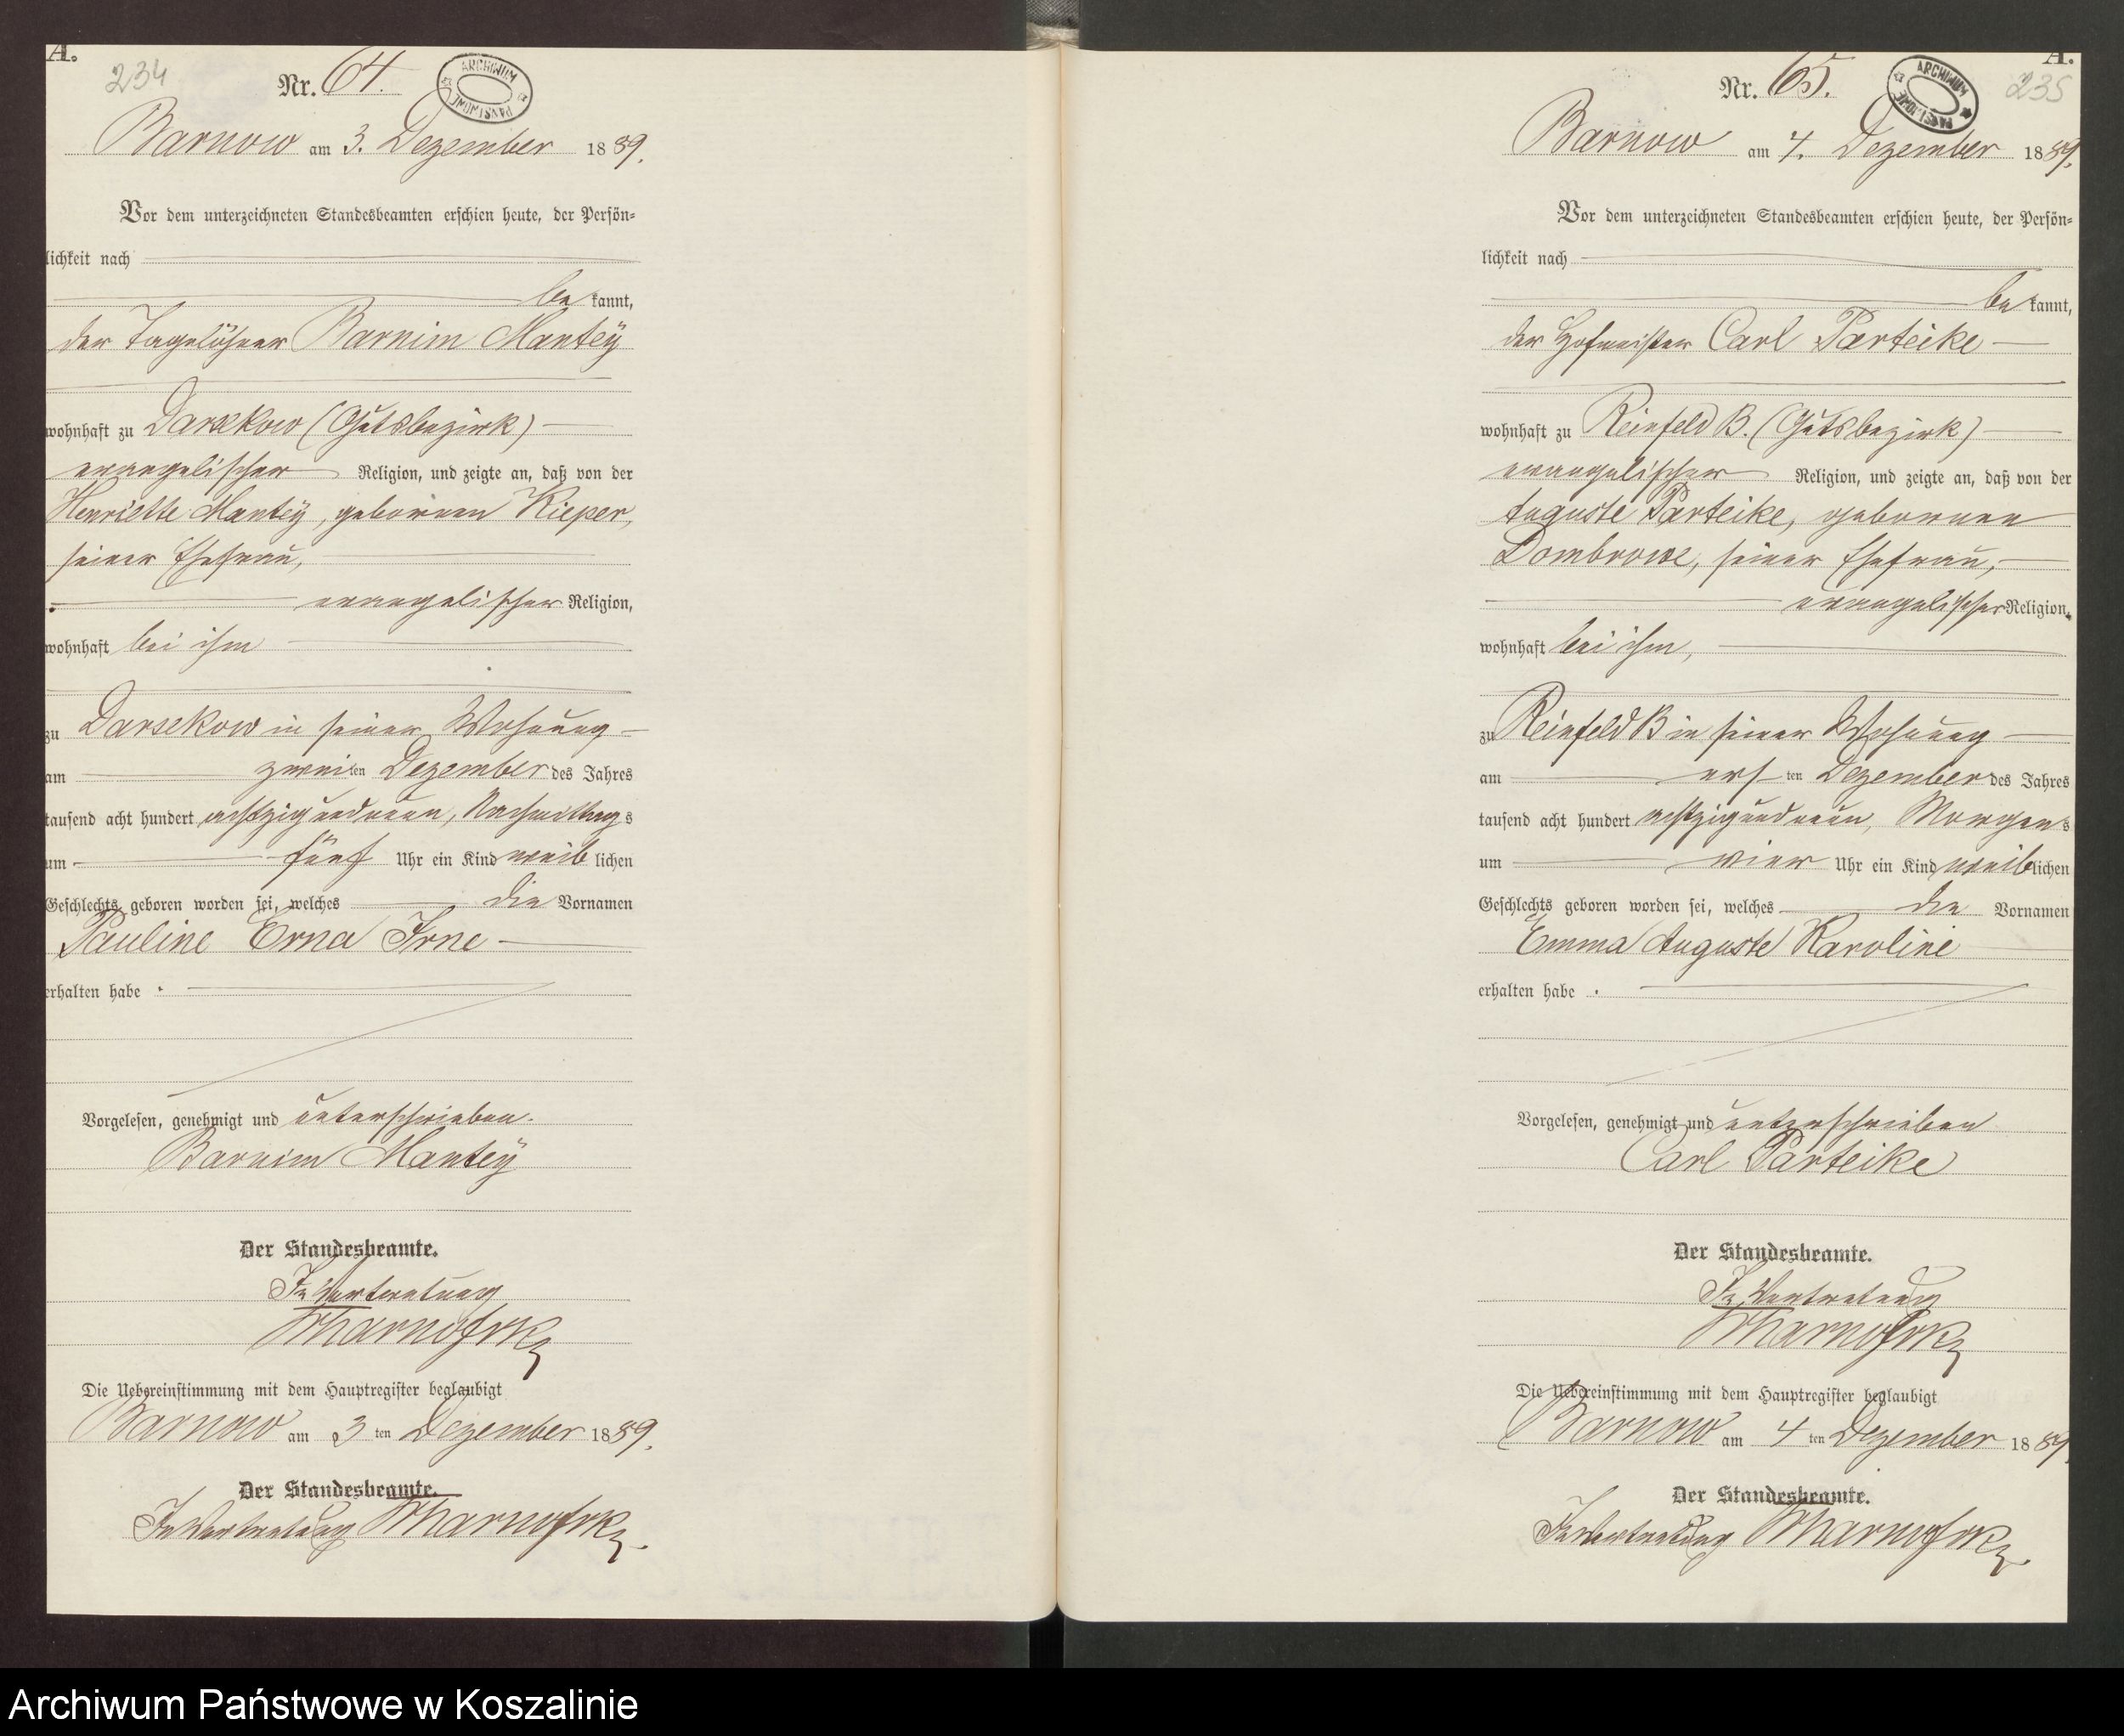 A.
234
Nr. 64.
ARCHIWUM PAŃSTWOWE
Barnow am 3. Dezember 1889.
Vor dem unterzeichneten Standesbeamten erschien heute, der Persön-
lichkeit nach
be kannt,
der Tagelöhner Barnim Mantey
wohnhaft zu Darsekow (Gutsbezirk)
evangelischer Religion, und zeigte an, daß von der
Henriette Mantey, geborenen Kieper,
seiner Ehefrau,
evangelischer Religion,
wohnhaft bei ihm
zu Darsekow in seiner Wohnung
am zweiten Dezember des Jahres
tausend acht hundert achtzigundneun, Nachmittags
um fünf Uhr ein Kind weiblichen
Geschlechts geboren worden sei, welches die Vornamen
Pauline Erna Irne
erhalten habe.
Vorgelesen, genehmigt und unterschrieben.
Barnim Mantey
Der Standesbeamte.
In Vertretung
Die Uebereinstimmung mit dem Hauptregister beglaubigt
Barnow am 3 ten Dezember 1889.
Der Standesbeamte.
In Vertretung
A.
235
Nr. 65.
ARCHIWUM PAŃSTWOWE
Barnow am 4. Dezember 1889.
Vor dem unterzeichneten Standesbeamten erschien heute, der Persön-
lichkeit nach
be kannt,
der Hofmeister Carl Parteike
wohnhaft zu Reinfeld B. (Gutsbezirk)
evangelischer Religion, und zeigte an, daß von der
Auguste Parteike, geborenen
Dombrowe, seiner Ehefrau,
evangelischer Religion,
wohnhaft bei ihm,
zu Reinfeld B in seiner Wohnung
am ersten Dezember des Jahres
tausend acht hundert achtzigundneun, Morgens
um vier Uhr ein Kind weiblichen
Geschlechts geboren worden sei, welches die Vornamen
Emma Auguste Karoline
erhalten habe.
Vorgelesen, genehmigt und unterschrieben
Carl Parteike
Der Standesbeamte.
In Vertretung
Die Uebereinstimmung mit dem Hauptregister beglaubigt
Barnow am 4 ten Dezember 1889
Der Standesbeamte.
In Vertretung
Archiwum Państwowe w Koszalinie